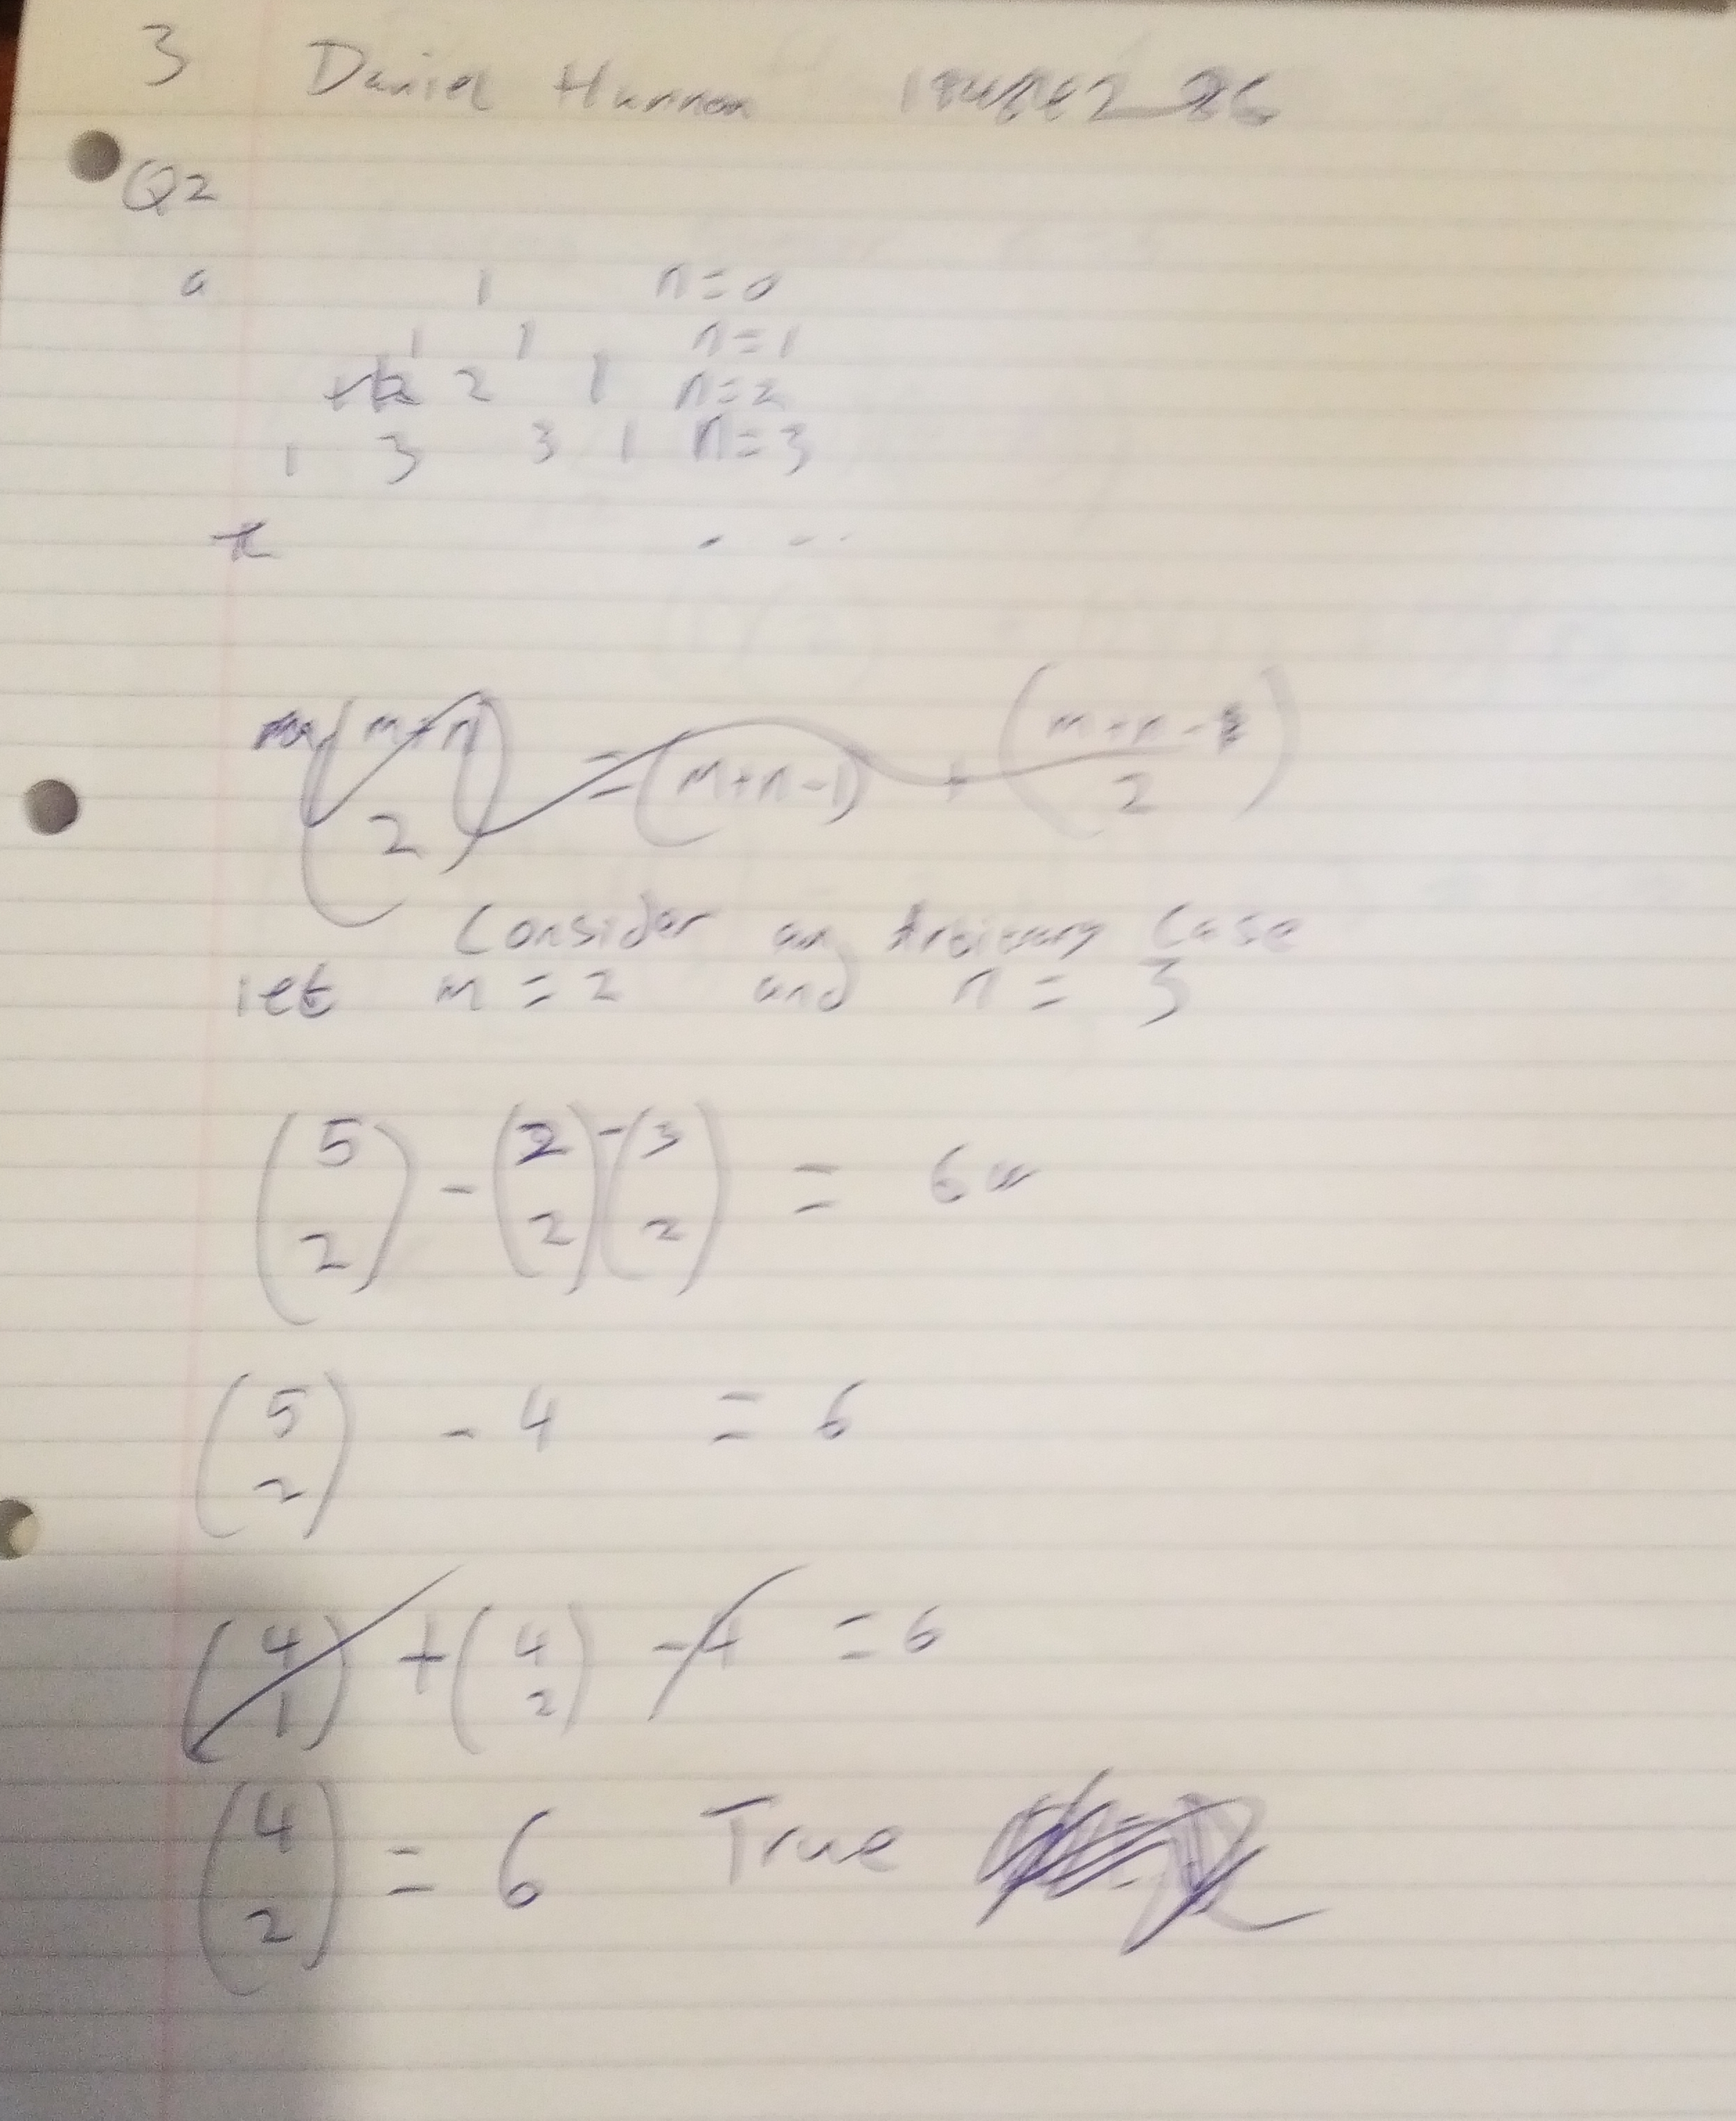 3 Daniel Hannon
Q2
a 1 n=0
1 1 n=1
2 1 n=2
1 3 3 1 n=3
. . .
(m+n
2) = (m+n-1) + (m+n-
2)
Consider an Arbitrary Case
let m = 2 and n = 3
(5
2) - (2
2) - (3
2) = 6
(5
2) - 4 = 6
(4
1) + (4
2) - 4 = 6
(4
2) = 6 True